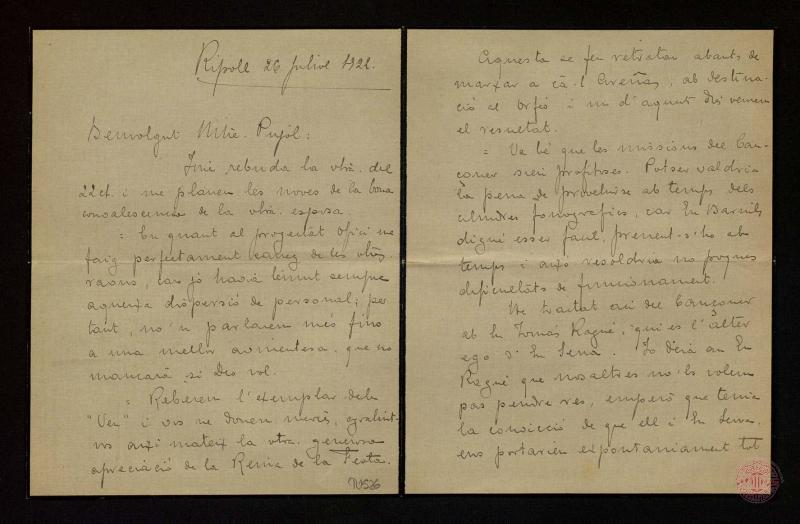 Ripoll 26 Juliol 1922.
Benvolgut Mtre. Pujol:
Tinc rebuda la vtra. del
22 ct. i me plauen les noves de la bona
convalescencia de la vtra. esposa.
= En quant al progectat ofici me
faig perfectament carrec de les vtres.
raons, car jo havia temut sempre
aqueixa dispersió de personal; per
tant, no'n parlarem més fins
a una mellor avinentesa que no
mancará, si Deu vol.
= Reberem l'exemplar dela
"Veu" i vos ne donem mercés, agraint-
vos aixi mateix la vtra. generosa
apreciació de la Reina de la Festa.
Aquesta se feu retratar abants de
marxar a cá-l Areñas, ab destina-
ció al Orfeó i un d'aquest dies veurem
el resultat.
= Va bé que les missions del Can-
çoner sien profitoses. Potser valdria
la pena de proveirse ab temps dels
cilindres fonografics, car En Barnils
digué esser facil, prenent-s'ho ab
temps i aixó resoldria no poques
dificultats de funcionament.
He tractat aci del Cançoner
ab En Tomás Ragué, qui es l'alter
ego d'En Serra. Jo deia an En
Ragué que nosaltres no'ls voliem
pas pendre res, emperó que tenia
la convicció de que ell i En Serra
ens portarien expontaniament tot